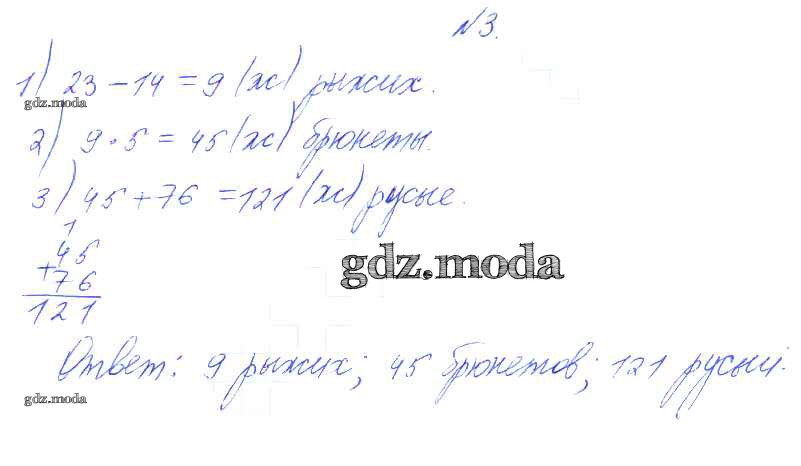 №3.
1) 23 - 14 = 9 (ж) рыжих.
gdz.moda
2) 9 · 5 = 45 (ж) брюнеты.
3) 45 + 76 = 121 (ж) русые.
1
45
+ 76
121
gdz.moda
Ответ: 9 рыжих; 45 брюнетов; 121 русый.
gdz.moda